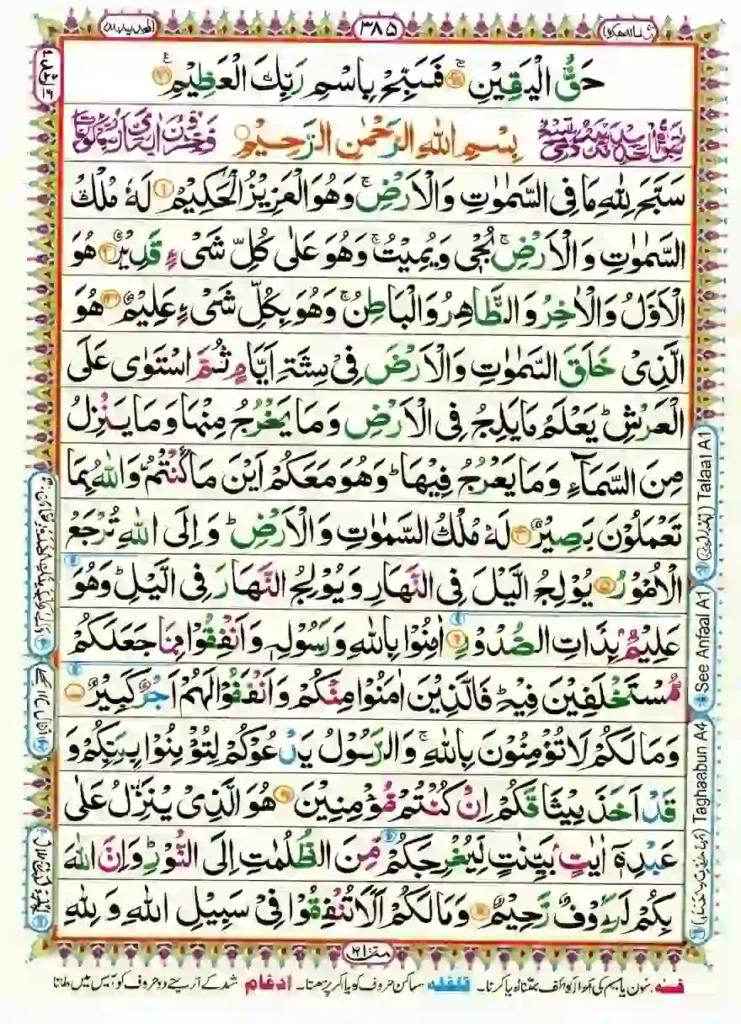 ٣٨٥
حَقُّ الْيَقِيْنِ فَسَبِّحْ بِاسْمِ رَبِّكَ الْعَظِيْمِ
بِسْمِ اللهِ الرَّحْمٰنِ الرَّحِيْمِ
سَبَّحَ لِلّٰهِ مَا فِى السَّمٰوٰتِ وَالْاَرْضِ ۚ وَهُوَ الْعَزِيْزُ الْحَكِيْمُ ١ لَهٗ مُلْكُ
السَّمٰوٰتِ وَالْاَرْضِ ۚ يُحْىٖ وَيُمِيْتُ ۚ وَهُوَ عَلٰى كُلِّ شَىْءٍ قَدِيْرٌ ٢ هُوَ
الْاَوَّلُ وَالْاٰخِرُ وَالظَّاهِرُ وَالْبَاطِنُ ۚ وَهُوَ بِكُلِّ شَىْءٍ عَلِيْمٌ ٣ هُوَ
الَّذِىْ خَلَقَ السَّمٰوٰتِ وَالْاَرْضَ فِىْ سِتَّةِ اَيَّامٍ ثُمَّ اسْتَوٰى عَلَى
الْعَرْشِ ؕ يَعْلَمُ مَا يَلِجُ فِى الْاَرْضِ وَمَا يَخْرُجُ مِنْهَا وَمَا يَنْزِلُ
مِنَ السَّمَآءِ وَمَا يَعْرُجُ فِيْهَا ؕ وَهُوَ مَعَكُمْ اَيْنَ مَا كُنْتُمْ ؕ وَاللهُ بِمَا
تَعْمَلُوْنَ بَصِيْرٌ ٤ لَهٗ مُلْكُ السَّمٰوٰتِ وَالْاَرْضِ ؕ وَاِلَى اللهِ تُرْجَعُ
الْاُمُوْرُ ٥ يُوْلِجُ الَّيْلَ فِى النَّهَارِ وَيُوْلِجُ النَّهَارَ فِى الَّيْلِ ؕ وَهُوَ
عَلِيْمٌۢ بِذَاتِ الصُّدُوْرِ ٦ اٰمِنُوْا بِاللهِ وَرَسُوْلِهٖ وَاَنْفِقُوْا مِمَّا جَعَلَكُمْ
مُّسْتَخْلَفِيْنَ فِيْهِ ؕ فَالَّذِيْنَ اٰمَنُوْا مِنْكُمْ وَاَنْفَقُوْا لَهُمْ اَجْرٌ كَبِيْرٌ
وَمَا لَكُمْ لَا تُؤْمِنُوْنَ بِاللهِ ۚ وَالرَّسُوْلُ يَدْعُوْكُمْ لِتُؤْمِنُوْا بِرَبِّكُمْ وَ
قَدْ اَخَذَ مِيْثَاقَكُمْ اِنْ كُنْتُمْ مُّؤْمِنِيْنَ هُوَ الَّذِىْ يُنَزِّلُ عَلٰى
عَبْدِهٖٓ اٰيٰتٍۭ بَيِّنٰتٍ لِّيُخْرِجَكُمْ مِّنَ الظُّلُمٰتِ اِلَى النُّوْرِ ؕ وَاِنَّ اللهَ
بِكُمْ لَرَءُوْفٌ رَّحِيْمٌ وَمَا لَكُمْ اَلَّا تُنْفِقُوْا فِىْ سَبِيْلِ اللهِ وَلِلّٰهِ
Talaal A1
See Anfaal A1
Taghaabun A4
غنه نون یا میم کی آواز کو الف جتنا لمبا کرنا۔ قلقله ساکن حروف کو ہلا کر پڑھنا۔ ادغام شد کے ذریعے دو حروف کو آپس میں ملانا